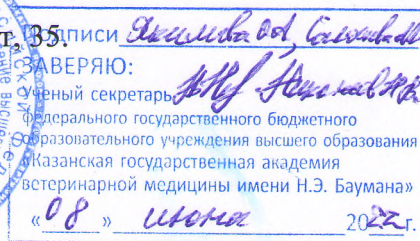 т, 35.
Подписи Якимова О.А,
ЗАВЕРЯЮ:
Ученый секретарь
федерального государственного бюджетного
образовательного учреждения высшего образования
«Казанская государственная академия
ветеринарной медицины имени Н.Э. Баумана»
«08» июня 2022г